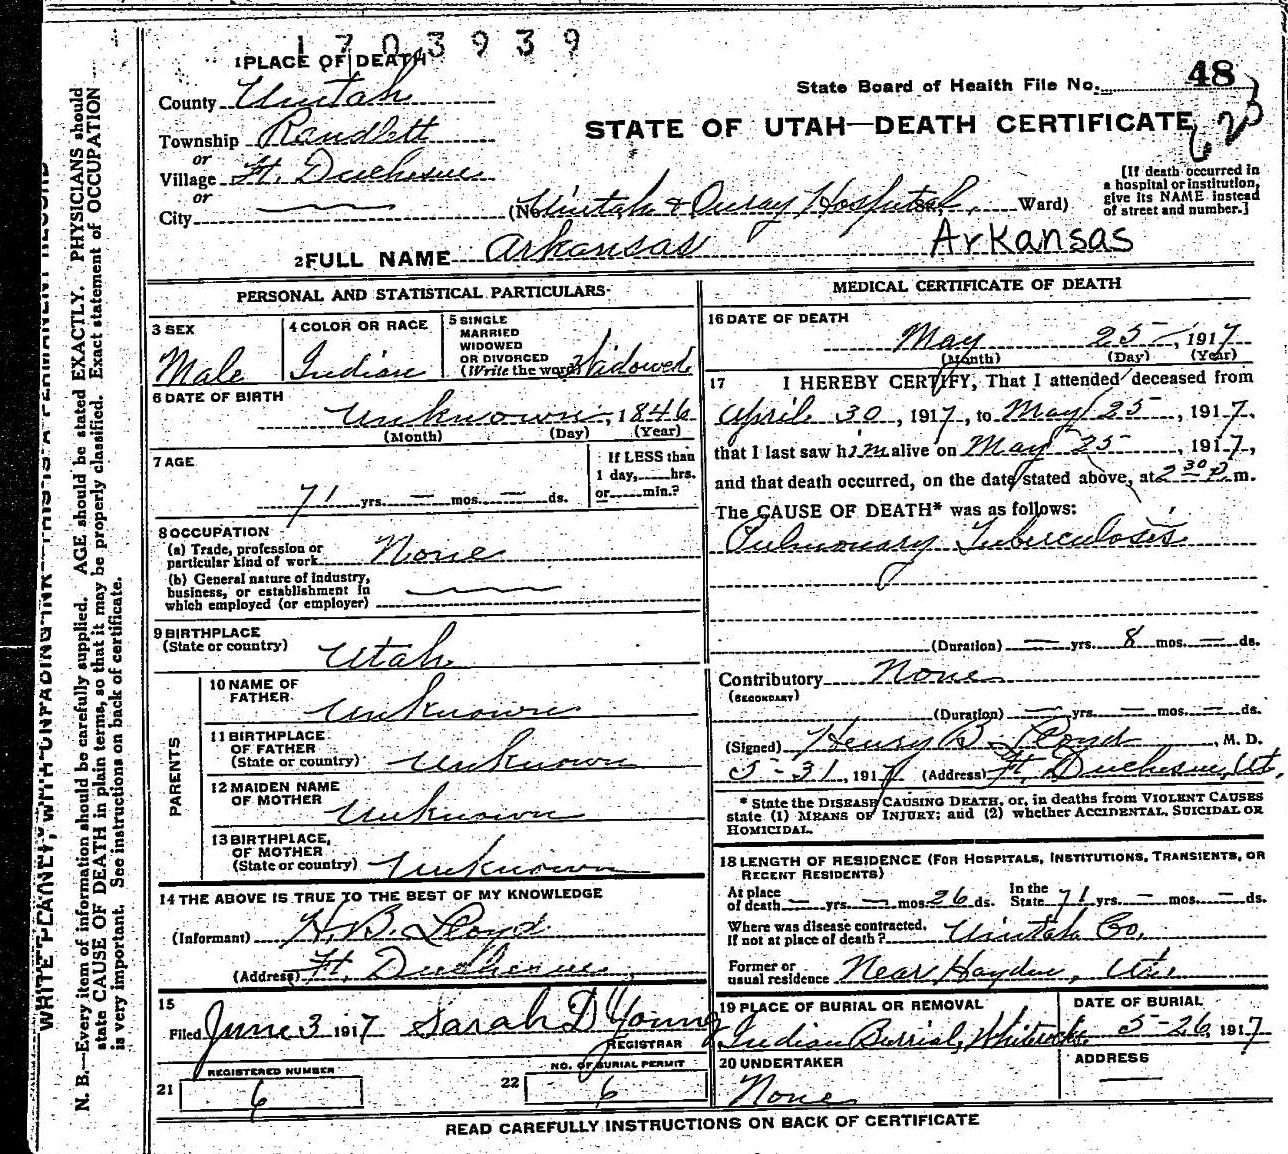 1703939
1 PLACE OF DEATH
State Board of Health File No. 48
County Uintah
STATE OF UTAH—DEATH CERTIFICATE
Township Randlett
or
Village Ft. Duchesne
or
City
(No. Uintah & Ouray Hospital St., Ward)
[If death occurred in
a hospital or institution,
give its NAME instead
of street and number.]
2 FULL NAME Arkansas Arkansas
PERSONAL AND STATISTICAL PARTICULARS
3 SEX
Male
4 COLOR OR RACE
Indian
5 SINGLE
MARRIED
WIDOWED
OR DIVORCED
(Write the word) Widowed
6 DATE OF BIRTH
Unknown, 1846
(Month) (Day) (Year)
7 AGE
71 yrs. — mos. — ds.
If LESS than
1 day, hrs.
or min.?
8 OCCUPATION
(a) Trade, profession or
particular kind of work None
(b) General nature of industry,
business, or establishment in
which employed (or employer)
9 BIRTHPLACE
(State or country) Utah
PARENTS
10 NAME OF
FATHER Unknown
11 BIRTHPLACE
OF FATHER
(State or country) Unknown
12 MAIDEN NAME
OF MOTHER Unknown
13 BIRTHPLACE
OF MOTHER
(State or country) Unknown
14 THE ABOVE IS TRUE TO THE BEST OF MY KNOWLEDGE
(Informant) H. B. Lloyd
(Address) Ft. Duchesne,
15
Filed June 3 1917 Sarah D Young
REGISTRAR
REGISTERED NUMBER
21 6
NO. OF BURIAL PERMIT
22 6
MEDICAL CERTIFICATE OF DEATH
16 DATE OF DEATH
May 25, 1917
(Month) (Day) (Year)
17 I HEREBY CERTIFY, That I attended deceased from
April 30, 1917, to May 25, 1917,
that I last saw him alive on May 25, 1917,
and that death occurred, on the date stated above, at 2 30 P. m.
The CAUSE OF DEATH* was as follows:
Pulmonary Tuberculosis
(Duration) — yrs. 8 mos. — ds.
Contributory None
(SECONDARY)
(Duration) — yrs. — mos. — ds.
(Signed) Henry B. Lloyd, M. D.
5-31, 1917 (Address) Ft. Duchesne, Ut.
* State the DISEASE CAUSING DEATH, or, in deaths from VIOLENT CAUSES
state (1) MEANS OF INJURY; and (2) whether ACCIDENTAL, SUICIDAL OR
HOMICIDAL.
18 LENGTH OF RESIDENCE (FOR HOSPITALS, INSTITUTIONS, TRANSIENTS, OR
RECENT RESIDENTS)
At place
of death — yrs. — mos. 26 ds.
In the
State 71 yrs. — mos. — ds.
Where was disease contracted,
If not at place of death? Uintah Co.
Former or
usual residence Near Hayden, Utah
19 PLACE OF BURIAL OR REMOVAL
Indian Burrial, Whiterocks.
DATE OF BURIAL
5-26, 1917
20 UNDERTAKER
None
ADDRESS
READ CAREFULLY INSTRUCTIONS ON BACK OF CERTIFICATE
WRITE PLAINLY, WITH UNFADING INK—THIS IS A PERMANENT RECORD
N. B.—Every item of information should be carefully supplied. AGE should be stated EXACTLY. PHYSICIANS should
state CAUSE OF DEATH in plain terms, so that it may be properly classified. Exact statement of OCCUPATION
is very important. See instructions on back of certificate.